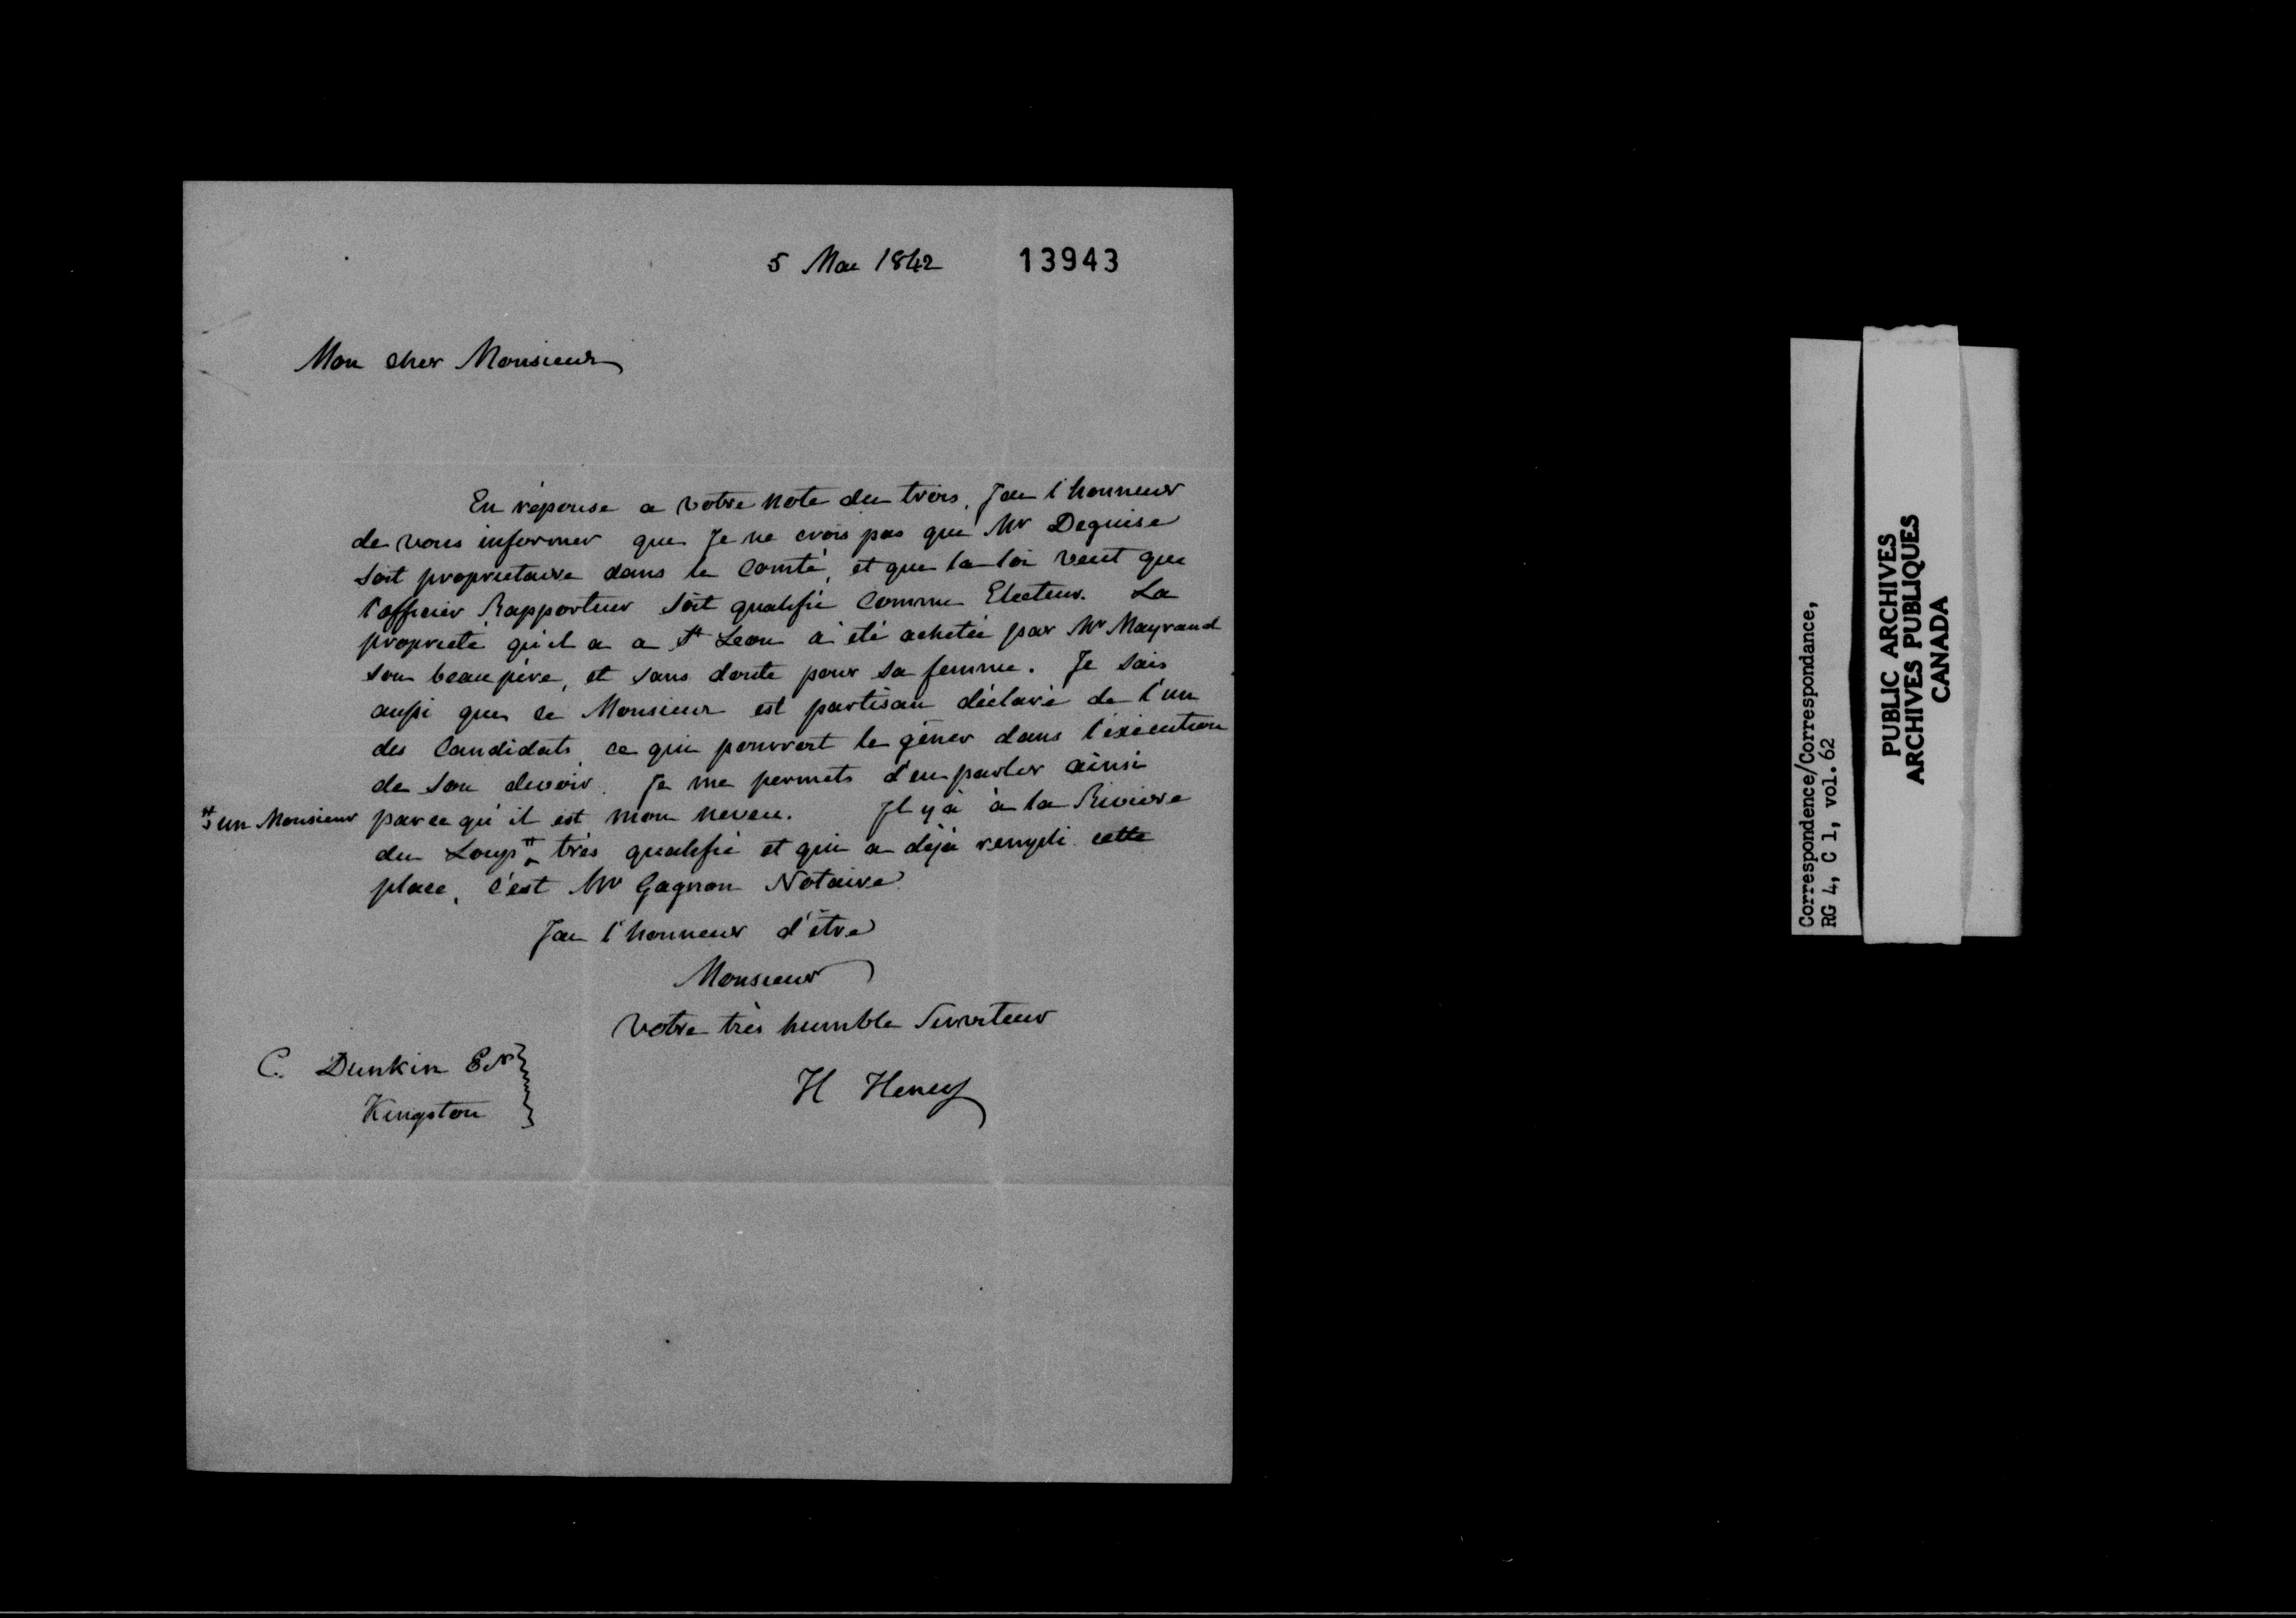 5 Mai 1842
13943
Mon cher Monsieur
En réponse a votre note du trois, J'ai l'honneur
de vous informer que Je ne crois pas que Mr Deguise
soit proprietaire dans le Comté, et que la loi veut que
l'officier Rapporteur soit qualifié Comme Electeur. La
propriete qu'il a a St Leon a été achetée par Mr Mayrand
son beau pére, et sans doute pour sa femme. Je sais
aussi que ce Monsieur est partisan déclaré de l'un
des Candidats, ce qui pourroit le géner dans l'exécution
de son devoir. Je me permets d'en parler ainsi
parce qu'il est mon neveu. Il y a à la Riviere
# un Monsieur
du Loup # très qualifié et qui a déjà rempli cette
place, c'est Mr Gagnon Notaire
J'ai l'honneur d'être
Monsieur
Votre très humble Serviteur
H Heney
C. Dunkin Er
Kingston
Correspondence/Correspondance,
RG 4, C 1, vol. 62
PUBLIC ARCHIVES
ARCHIVES PUBLIQUES
CANADA